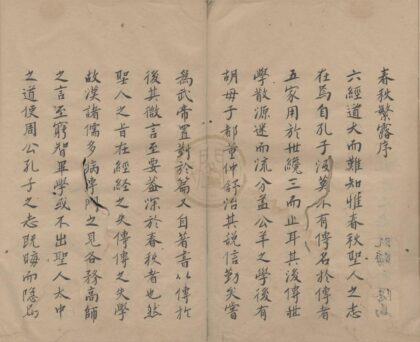 春秋繁露序
六經道大而難知惟春秋聖人之志
在焉自孔子沒莫不有傳名於傳者
五家用於世纔三而止耳其後傳世
學散源迷而流分蓋公羊之學後有
胡母子都董仲舒治其說信勤矣嘗
為武帝置對於篇又自著書以傳於
後其微言至要蓋深於春秋者也然
聖人之旨在經經之失傳傳之失學
故漢諸儒多病專門之見各務高師
之言至窮智畢學或不出聖人大中
之道使周公孔子之志既晦而隱焉